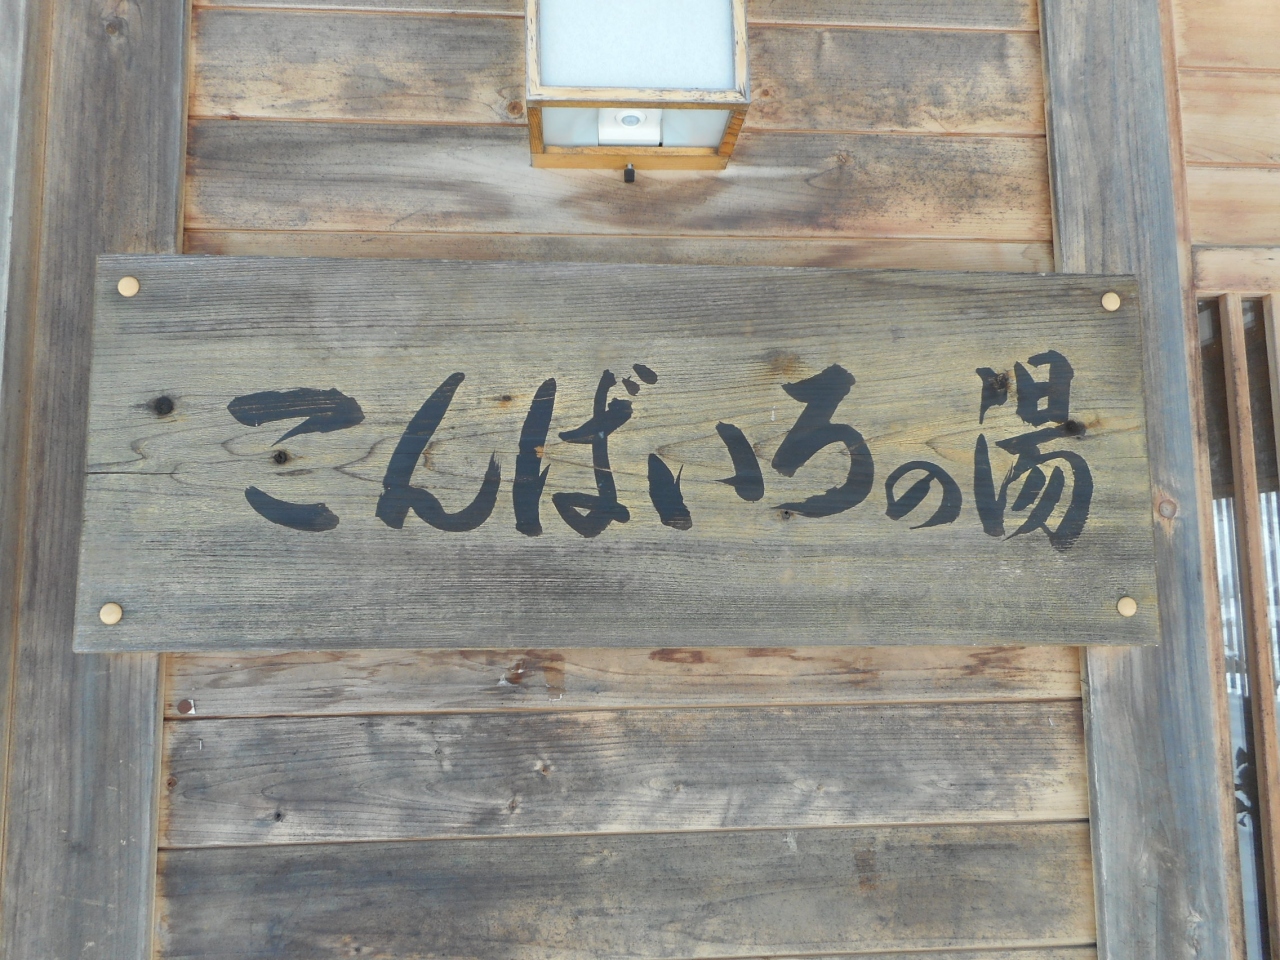 こんばいろの湯